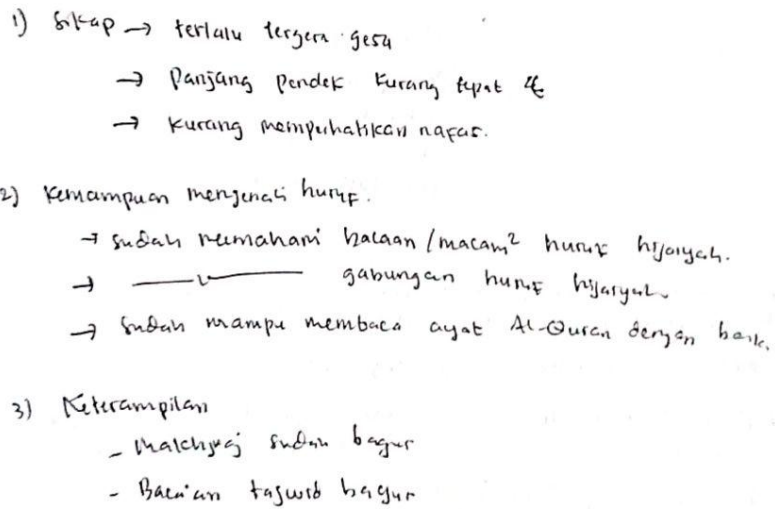 1) Sikap → terlalu tergesa gesa
→ Panjang pendek kurang tepat
→ Kurang memperhatikan nafas.
2) Kemampuan mengenali huruf.
→ Sudah memahami bacaan / macam² huruf hijaiyah.
→ gabungan huruf hijaiyah
→ Sudah mampu membaca ayat Al-Quran dengan baik.
3) Keterampilan
- Makhraj sudah bagus
- Baca'an tajwid bagus